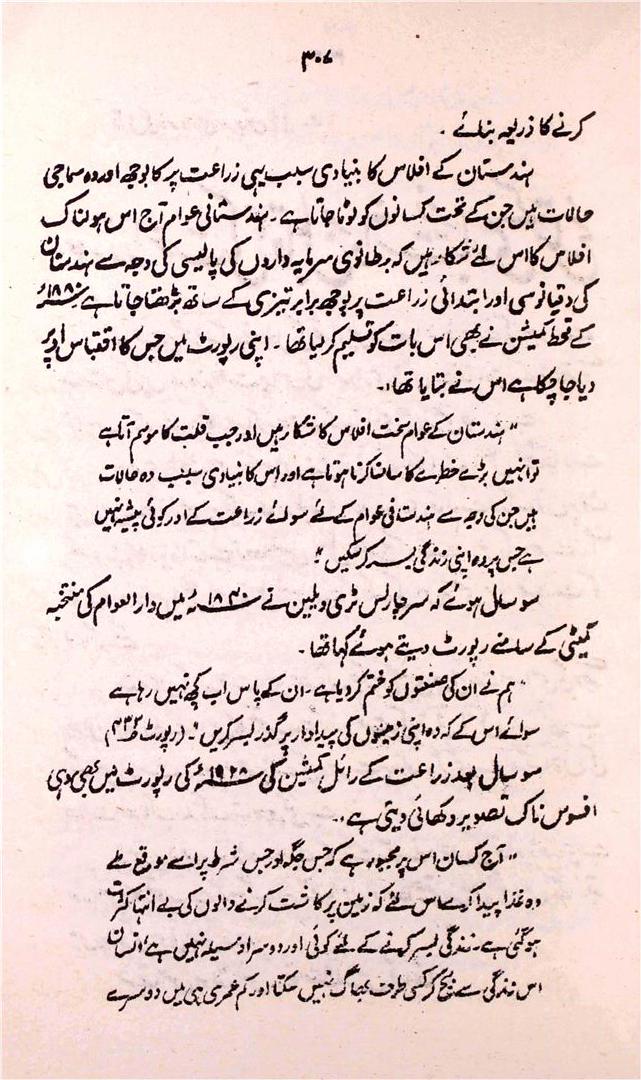 ۳۰۷
کرنے کا ذریعہ بنائے ۔
ہندستان کے افلاس کا بنیادی سبب یہی زراعت پر کا بوجھ اور وہ سماجی
حالات ہیں جن کے تحت کسانوں کو لوٹا جاتا ہے ۔ ہندستانی عوام آج اس ہولناک
افلاس کا اس لئے شکار ہیں کہ برطانوی سرمایہ داروں کی پالیسی کی وجہ سے ہندستان
کی دقیانوسی اور ابتدائی زراعت پر بوجھ برابر تیزی کے ساتھ بڑھتا جاتا ہے ۱۸۸۰ء
کے قحط کمیشن نے بھی اس بات کو تسلیم کر لیا تھا ۔ اپنی رپورٹ میں جس کا اقتباس اوپر
دیا جا چکا ہے اس نے بتایا تھا:۔
" ہندستان کے عوام سخت افلاس کا شکار ہیں اور جب قلت کا موسم آتا ہے
تو انہیں بڑے خطرے کا سامنا کرنا ہوتا ہے اور اس کا بنیادی سبب وہ حالات
ہیں جن کی وجہ سے ہندستانی عوام کے لئے سوائے زراعت کے اور کوئی پیشہ نہیں
ہے جس پر وہ اپنی زندگی بسر کر سکیں "
سو سال ہوئے کہ سر چارلس ٹری ویلین نے ۱۸۴۰ء میں دارالعوام کی منتخبہ
کمیٹی کے سامنے رپورٹ دیتے ہوئے کہا تھا ۔
" ہم نے ان کی صنعتوں کو ختم کر دیا ہے ۔ ان کے پاس اب کچھ نہیں رہا ہے
سوائے اس کے کہ وہ اپنی زمینوں کی پیداوار پر گذر بسر کریں "۔ (رپورٹ
سو سال بعد زراعت کے رائل کمیشن کی ۱۹۲۸ء کی رپورٹ میں بھی وہی
افسوس ناک تصویر دکھائی دیتی ہے :۔
" آج کسان اس پر مجبور ہے کہ جس جگہ اور جس شرط پر اسے موقع ملے
وہ غذا پیدا کرے اس لئے کہ زمین پر کاشت کرنے والوں کی بے انتہا کثرت
ہو گئی ہے ۔ زندگی بسر کرنے کے لئے کوئی اور دوسرا وسیلہ نہیں ہے، انسان
اس زندگی سے بچ کر کسی طرف بھاگ نہیں سکتا اور کم عمری ہی میں دوسرے